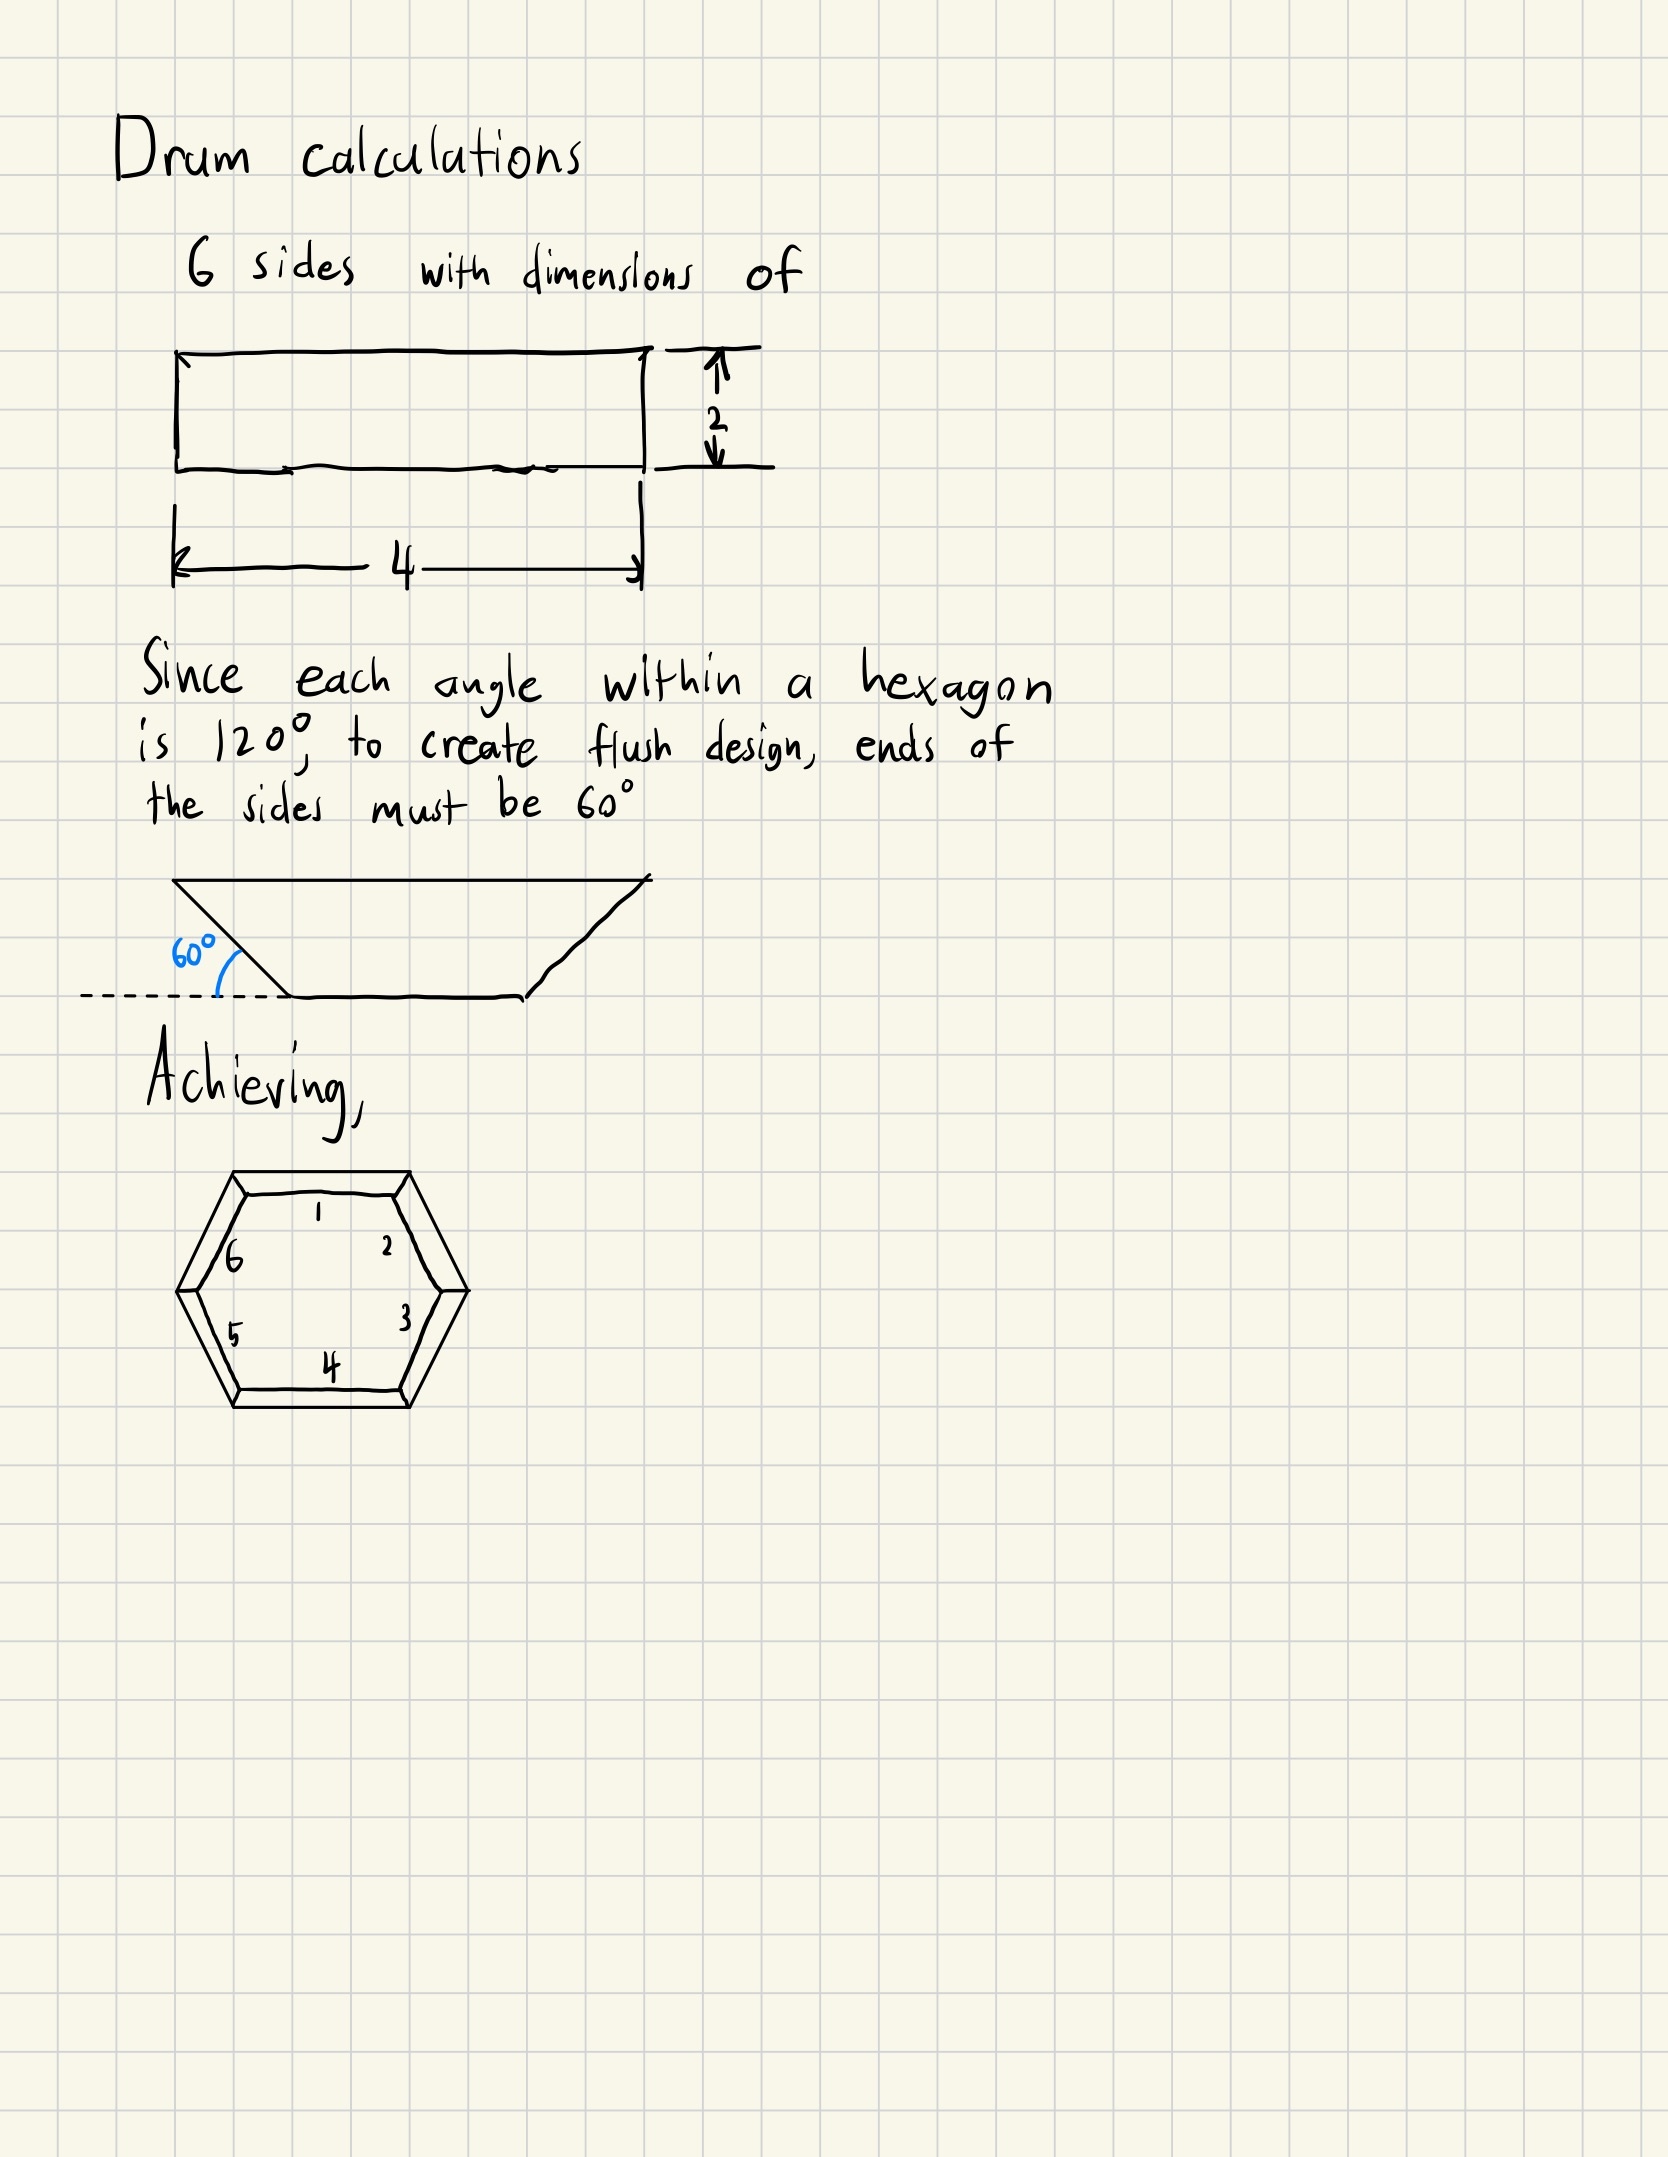 Drum calculations
6 sides with dimensions of
2
4
Since each angle within a hexagon
is 120°, to create flush design, ends of
the sides must be 60°
60°
Achieving,
1
6 2
5 3
4